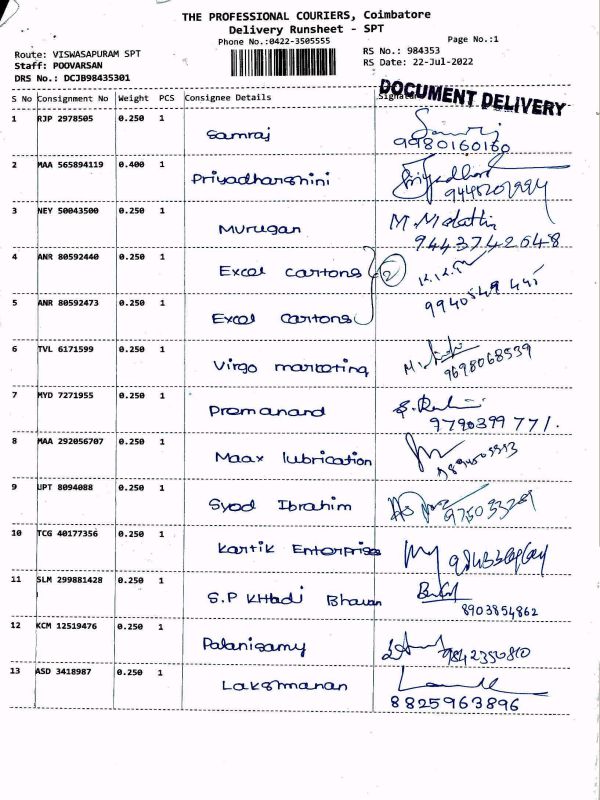 THE PROFESSIONAL COURIERS, Coimbatore
Delivery Runsheet - SPT
Phone No.:0422-3505555
Page No.:1
Route: VISWASAPURAM SPT
RS No.: 984353
Staff: POOVARSAN
RS Date: 22-Jul-2022
DRS No.: DCJB98435301
DOCUMENT DELIVERY
S No Consignment No Weight PCS Consignee Details
1 RJP 2978505 0.250 1 Samraj
9980160160
2 MAA 565894119 0.400 1 Priyadharshini
3 NEY 50043500 0.250 1 Murugan M. Malathi
9443742648
4 ANR 80592440 0.250 1 Excel cartons 2
9940549 445
5 ANR 80592473 0.250 1 Excel cartons
6 TVL 6171599 0.250 1 Virgo marketing
9698068539
7 MYD 7271955 0.250 1 Premanand
9790399771.
8 MAA 292056707 0.250 1 Maax lubrication
9 UPT 8094088 0.250 1 Syed Ibrahim
10 TCG 40177356 0.250 1 Kartik Enterprises
11 SLM 299881428 0.250 1 S.P KHadi Bhavan
8903854862
12 KCM 12519476 0.250 1 Palanisamy
9842350810
13 ASD 3418987 0.250 1 Lakshmanan
8825963896